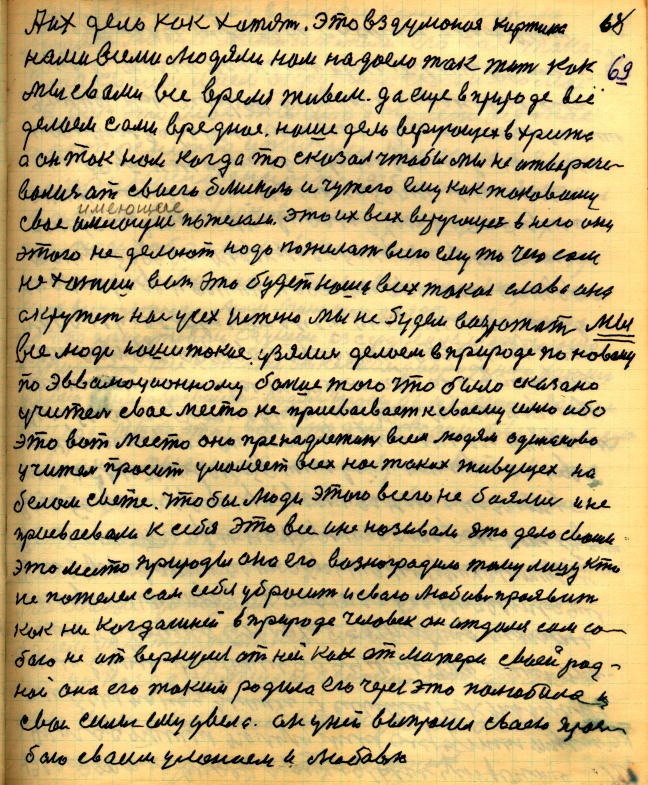 Аих дель как хотят. Это вздуманая картина 68
нами всеми людями нам надоело так жит как 69
мы свами все время живем. да еще в природе всё
делаем сами вредное. наше дель верующех в христа
а он так нам когда то сказал чтобы мы не отворачи-
валися от своего близкого и чужого ему как таковому
свое имеющие имеющее пожелали. Это их всех верующех в него они
этого не делают надо пожелат всего ему то чего сам
не хотиш вот это будет наша всех такая слава она
акружет нас усех истено мы не будем возражат мы
все люди наши такие узялися делаем в природе по новому
по Эввалоуционному больше того что было сказано
учител свое место не присваевает к своему имю ибо
это вот место оно пренадлежит всем людям одинаково
учител просит умоляет всех нас таких живущех на
белом свете. чтобы люди этого всего не боялис и не
присваевали к себя это все и не называли это дело своим
это место природы она его вазноградила тому лицу кто
не пожелел сам себя убросит и сваю любов проявит
как ни когдашней в природе человек он отдался сам со-
бою не от вернулся от ней как от матери своей род-
ной она его таким родила его через это полюбила и
свои силы ему увела. он уней выпросил своею прось-
бою своим умением и любовью